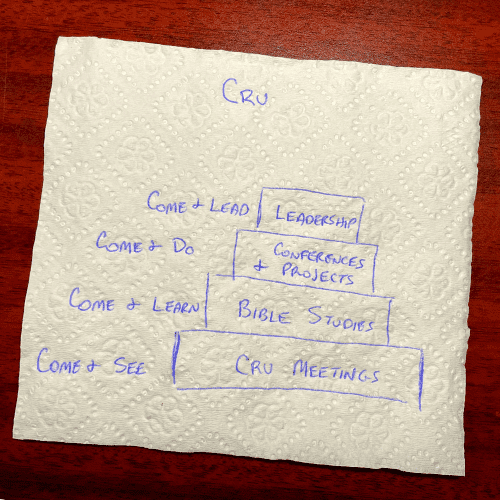 CRU
COME & LEAD LEADERSHIP
COME & DO CONFERENCES
& PROJECTS
COME & LEARN BIBLE STUDIES
COME & SEE CRU MEETINGS